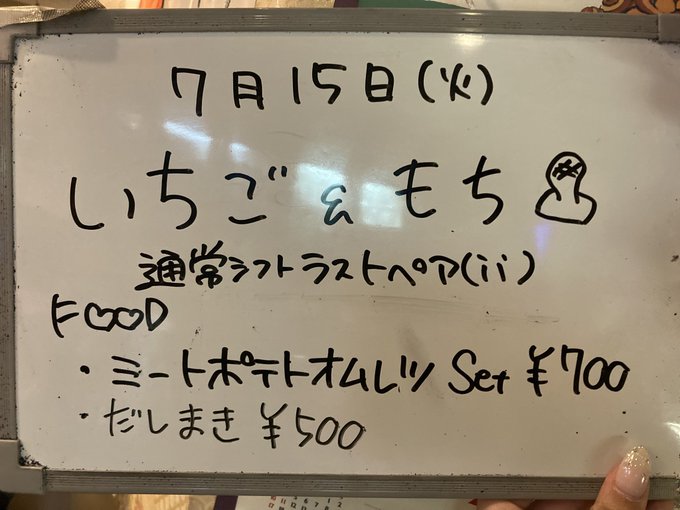 7月15日(火)
いちご&もち
通常シフトラストペア(ii)
FOOD
・ミートポテトオムレツ Set ¥700
・だしまき ¥500